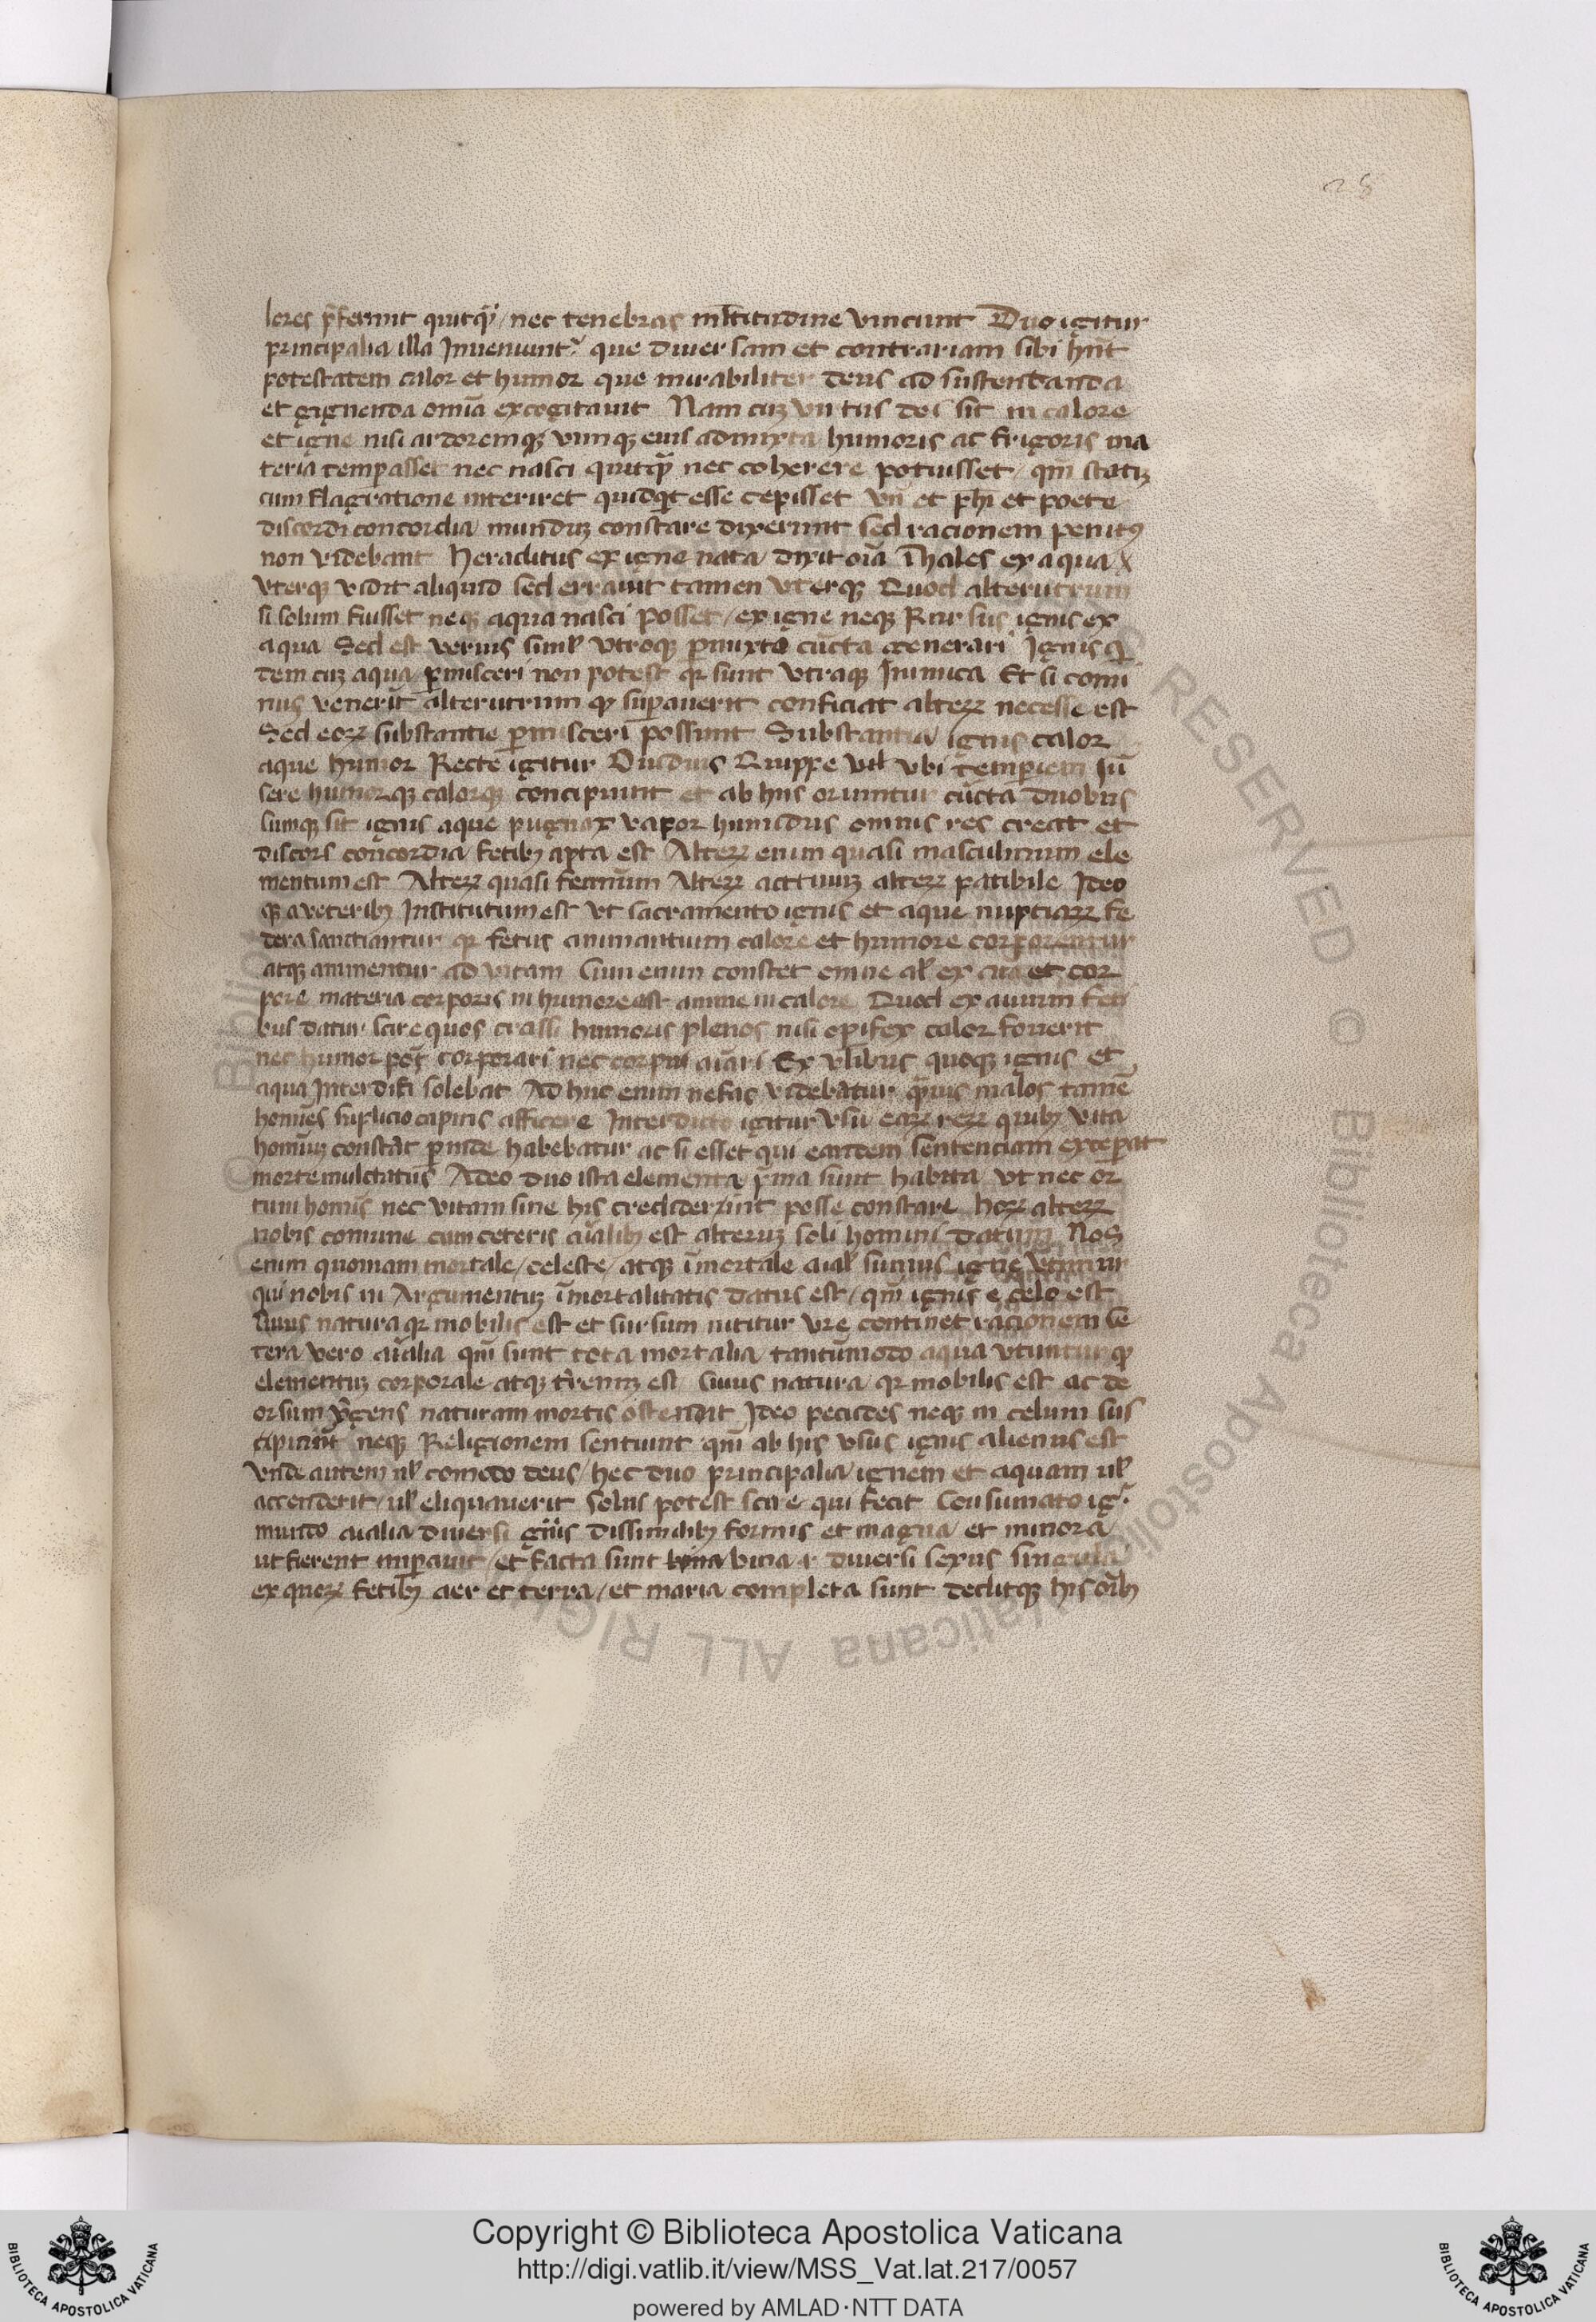 28
lores p̄ferunt quicq̄ / nec tenebras mltitudine vincunt Duo igitur
principalia illa Inveniunt᷑ que diversam et contrariam sibi hn̄t
potestatem calor et humor que mirabiliter deus ad sustentanda
et gignenda om̄ia excogitavit Nam cuꝫ virtus dei sit in calore
et igne nisi ardoremqꝫ vimqꝫ eius admixta humoris ac frigoris ma
teria temperasset nec nasci quicq̄ nec coherere potuisset / qm̄ statiꝫ
cum flagratione interiret quidqt esse cepisset Vn̄ et ph̄i et poete
discordi concordia munduꝫ constare dixerunt sed racionem penitꝰ
non videbant Heraclitus ex igne nata dixit oīa Thales ex aqua
Vterqꝫ vidit aliquid sed erravit tamen vterqꝫ Quod alterutrum
si solum fuisset neqꝫ aqua nasci posset / ex igne neqꝫ Rursus ignis ex
aqua Sed est verius siml̄ vtroqꝫ ꝑmixto cūcta generari Ignis qi
dem cuꝫ aqua ꝑmisceri non potest qr sunt vtraqꝫ Inimica Et si comi
nus venerīt alterutrum qd suꝑaverit conficiat alteꝝ necesse est
Sed eoꝝ substantie ꝑmisceri possunt Substantia ignis calor
aque humor Recte igitur Ovidius Quippe vbi temperiem sū
sere humorqꝫ calorqꝫ concipiunt et ab hiis oriuntur cūcta duobus
Cumqꝫ sit ignis aque pugnax vapor humidus omnis res creat et
discors concordia fetibꝫ apta est Alteꝝ enim quasi masculinum ele
mentum est Alteꝝ quasi feminūm Alteꝝ activuꝫ alteꝝ patibile Ideo
qꝫ a veteribꝫ Institutum est vt sacramento ignis et aque nuptiaꝝ fe
dera sanctiantur qr fetus animantium calore et humore corporentur
atqꝫ animentur ad vitam Cum enim constet omne al̄ ex aīa et cor
pore materia corporis in humore est anime in calore Quod ex avium feti
bus datur scire quos crassi humoris plenos nisi opifex calor foverit
nec humor pot̄ corporari nec corpus aīari Ex vlibus quoqꝫ ignis et
aqua Interdici solebat Ad huc enim nefas videbatur q̄mvis malos tamē
homīes suplicio capitis afficere Interdicto igitur vsu eaꝝ reꝝ quibꝫ vita
homīuꝫ constat ꝑinde habebatur ac si esset qui eandem sentenciam exceperat
morte mulctatus Adeo duo ista elementa ṗma sunt habita vt nec or
tum homīs nec vitam sine his crediderint posse constare Hoꝝ alteꝝ
nobis comune cum ceteris aīalibꝫ est alteruꝫ soli homini datum Nos
enim quoniam mortale / celeste / atqꝫ īmortale aial̄ sumus igne vtimur
qui nobis in Argumentuꝫ īmortalitatis datus est / qm̄ ignis e celo est
Cuius natura qr mobilis est et sursum nititur vite continet racionem Ce
tera vero aīalia qm̄ sunt tota mortalia tantūmodo aqua vtuntur qd
elementuꝫ corporale atqꝫ tr̄renuꝫ est Cuius natura / qr mobilis est ac de
orsum v̄gens naturam mortis ostendit Ideo pecudes neqꝫ in celum sus
cipiūnt neqꝫ Religionem sentiunt qm̄ ab his vsus ignis alienus est
Vnde autem vl̄ comodo deus / hec duo principalia ignem et aquam vl̄
accenderit / vl̄ eliquaverit Solus potest scire qui fecit Consumato ig᷑
mundo aīalia diversi gn̄is dissimilibꝫ formis et magna et minora
ut fierent imꝑavit / et facta sunt bina bina i diversi sexus singula
ex quoꝝ fetibꝫ aer et terra / et maria completa sunt deditqꝫ his oībꝫ
Copyright © Biblioteca Apostolica Vaticana
http://digi.vatlib.it/view/MSS_Vat.lat.217/0057
powered by AMLAD·NTT DATA
BIBLIOTECA APOSTOLICA VATICANA
BIBLIOTECA APOSTOLICA VATICANA
© Biblioteca Apostolica Vaticana ALL RIGHTS RESERVED